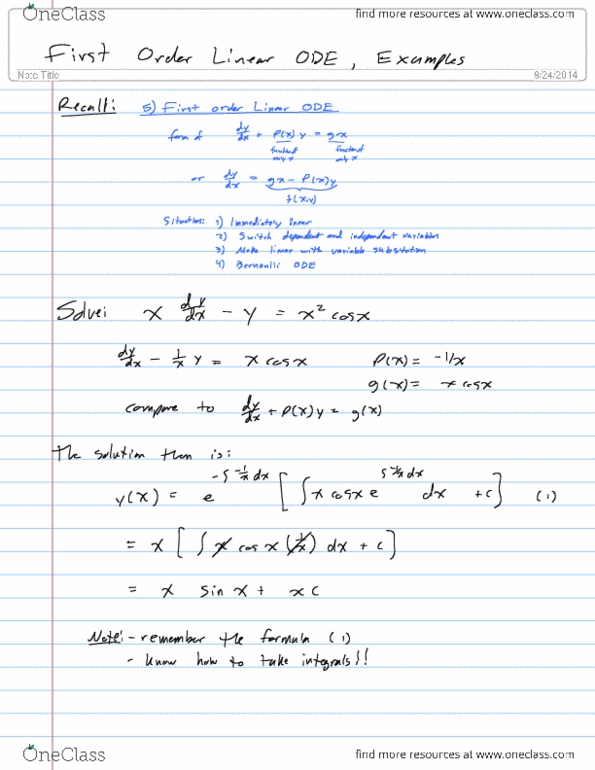 OneClass
find more resources at www.oneclass.com
First Order Linear ODE, Examples
Note Title
9/24/2014
Recall: 5) First order Linear ODE
form of dy/dx + P(x) y = gx
function of only x
function of only x
or dy/dx = gx - P(x)y
f(x,y)
Situations: 1) Immediately linear
2) Switch dependent and independent variables
3) Make linear with variable substitution
4) Bernoulli ODE
Solve: x dy/dx - y = x² cosx
dy/dx - 1/x y = x cosx P(x) = -1/x
g(x) = x cosx
compare to dy/dx + P(x) y = g(x)
The solution then is:
y(x) = e^(-∫-1/x dx) [ ∫ x cosx e^(∫-1/x dx) dx + c ] (1)
= x [ ∫ x cos x (1/x) dx + c ]
= x sin x + x c
Note: - remember the formula (1)
- know how to take integrals!!
OneClass
find more resources at www.oneclass.com